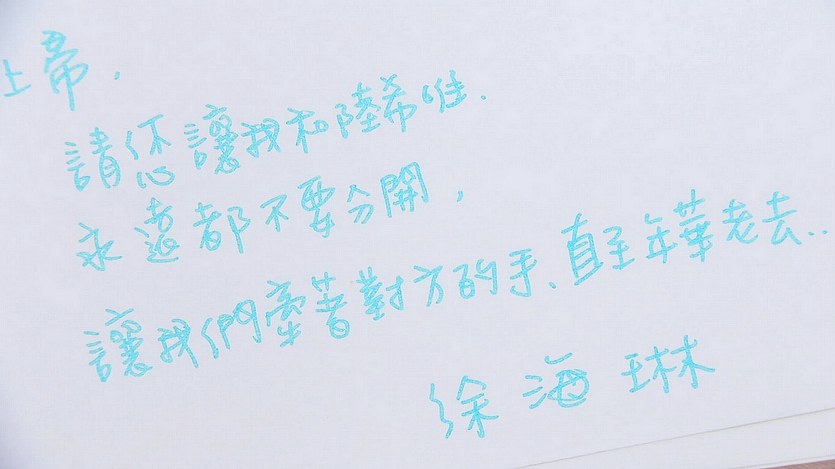 上帝,
請您讓我和陸希唯.
永遠都不要分開,
讓我們牽著對方的手、直至年華老去..
徐海琳